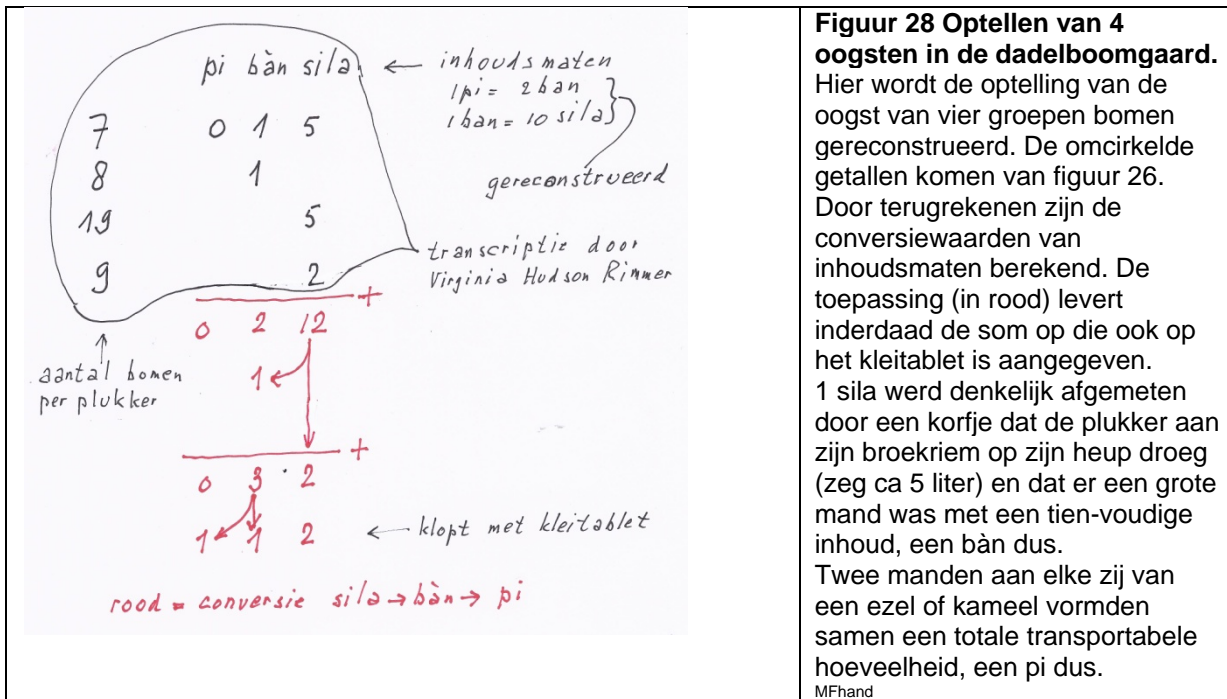 pi bàn sila ← inhoudsmaten
1pi = 2 ban
1 ban = 10 sila
gereconstrueerd
7 0 1 5
8 1
19 5
9 2
transcriptie door
Virginia Hudson Rimmer
+
0 2 12
aantal bomen
per plukker
1
+
0 3 2
1 1 2 ← klopt met kleitablet
rood = conversie sila → bàn → pi
Figuur 28 Optellen van 4
oogsten in de dadelboomgaard.
Hier wordt de optelling van de
oogst van vier groepen bomen
gereconstrueerd. De omcirkelde
getallen komen van figuur 26.
Door terugrekenen zijn de
conversiewaarden van
inhoudsmaten berekend. De
toepassing (in rood) levert
inderdaad de som op die ook op
het kleitablet is aangegeven.
1 sila werd denkelijk afgemeten
door een korfje dat de plukker aan
zijn broekriem op zijn heup droeg
(zeg ca 5 liter) en dat er een grote
mand was met een tien-voudige
inhoud, een bàn dus.
Twee manden aan elke zij van
een ezel of kameel vormden
samen een totale transportabele
hoeveelheid, een pi dus.
MFhand